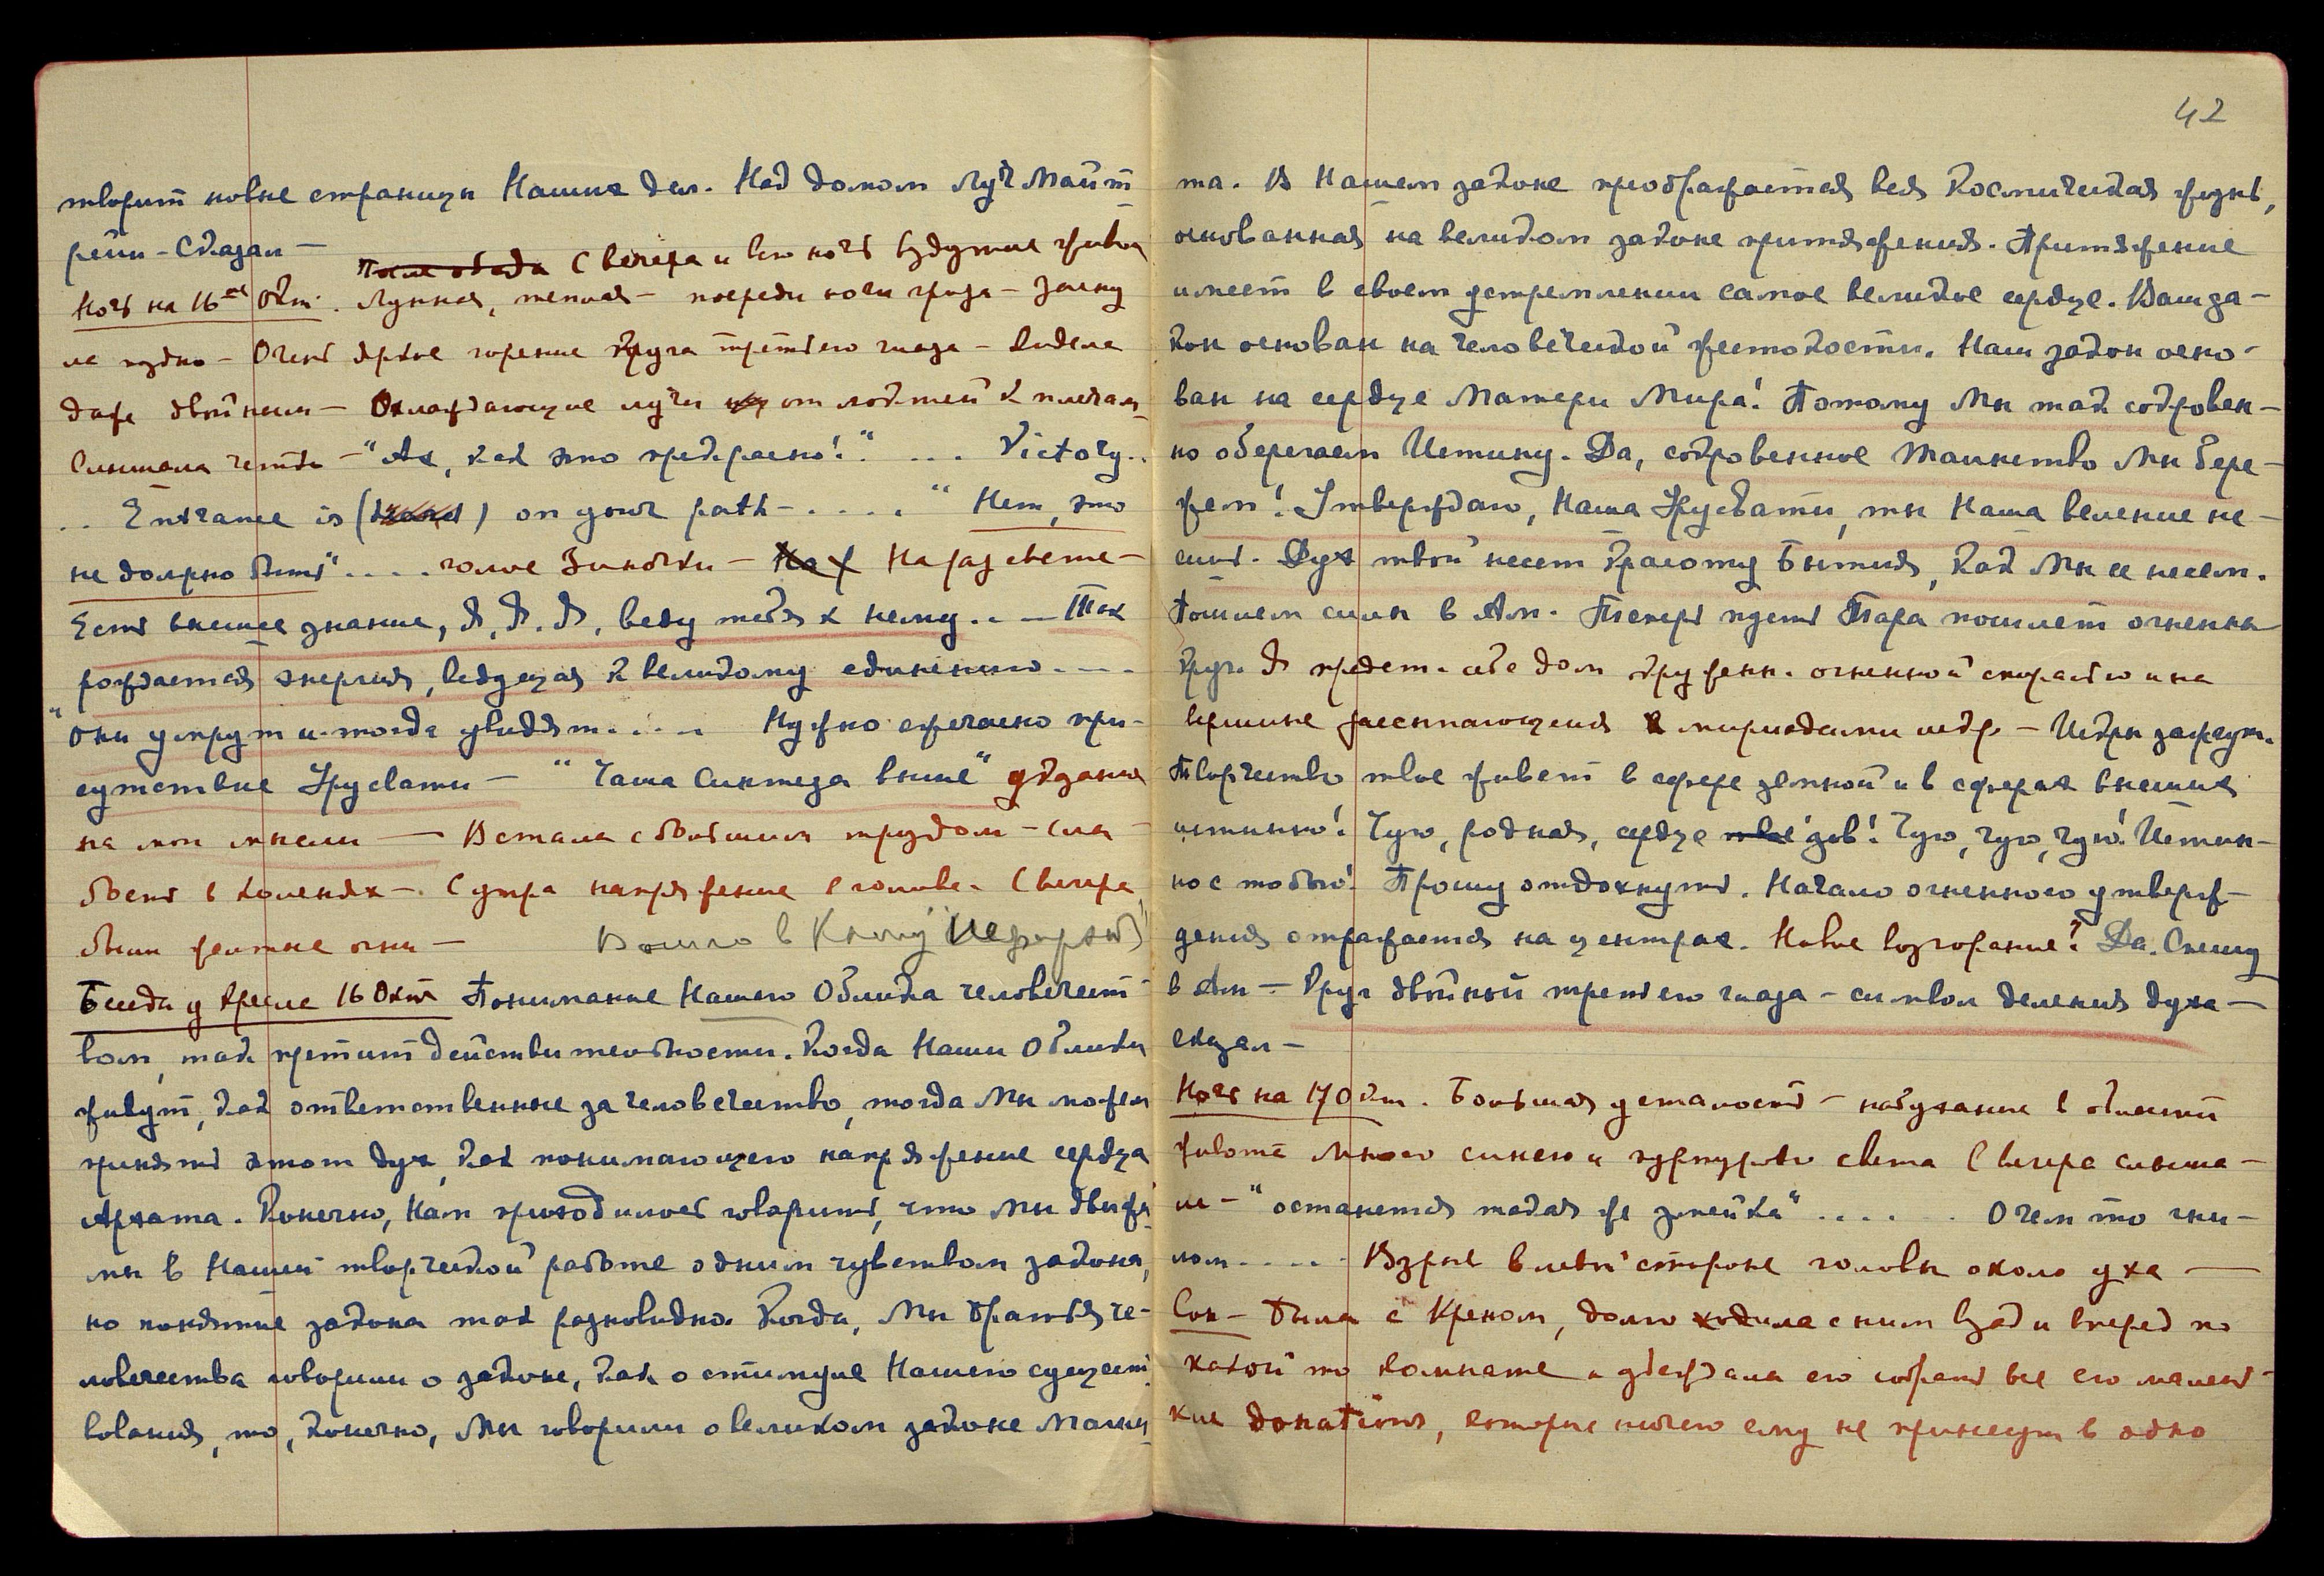 42
творит новые страницы Наших дел. Над домом луч Майт
рейи - Сказал —
Ночь на 16ое Окт. После обеда С вечера и всю ночь
Лунная, теплая — посреди ночи гроза — Засну
ла поздно — Очень яркое горение круга третьего глаза — видела
даже двойным — Охлаждающие лучи из от локтей к плечам
Слышала четко — "Ах, как это прекрасно!" ... Victory..
.. Entrance is () on your path — ..... " Нет, это
не должно быть" .... голос Зиночки — На рассвете —
Есть высшее знание, Я, Я, Я, веду тебя к нему .. — Так
рождается энергия, ведущая к великому единению ...
"Они умрут и тогда увидят..... Нужно сейчасно при-
сутствие Урусвати — "Чаша Синтеза выше" указание
на мои мысли — Встала с большим трудом — сла
бость в коленях —. С утра напряжение в голове. С вечера
были желтые огни — Вошло в Книгу "Иерархия"
Беседа у кресле 16 Окт Понимание Нашего Облика человечест-
вом, так претит действительности. Когда Наши Облики
живут, как ответственные за человечество, тогда Мы можем
принять этот дух, как понимающего напряжение сердца
Архата. Конечно, Нам приходилось говорить, что Мы движи
мы в Нашей творческой работе одним чувством закона,
но понятие закона так разновидно. Когда, Мы Братья че-
ловечества говорили о законе, как о стимуле Нашего сущест
вования, то, конечно, Мы говорили о великом законе Маги
та. В Нашем законе преображается вся Космическая жизнь,
основанная на великом законе притяжения. Притяжение
имеет в своем устремлении самое великое сердце. Ваш за-
кон основан на человеческой жестокости. Наш закон осно-
ван на сердце Матери Мира! Потому Мы так сокровен-
но оберегаем Истину. Да, сокровенное Таинство Мы бере-
жем! Утверждаю, Наша Урусвати, ты Наша веление не-
сешь. Дух твой несет Красоту Бытия, как Мы ее несем.
Пошлем силы в Ам. Теперь пусть Тара пошлет огненны
круг. Я предст. себе дом окружен. огненной спиралью и на
вершине рассыпающейся к мириадами искр — Искры зажгут.
Творчество твое живет в сфере земной и в сферах высших
истинно! Чую, родная, сердце твое зов! Чую, чую, чую! Истин-
но с тобою! Прошу отдохнуть. Начало огненного утверж-
дения отражается на центрах. Новое возгорание? Да. Спешу
в Ам — Круг двойной третьего глаза — символ деления духа —
сказал —
Ночь на 17 Окт. Большая усталость — набухание в области
живота Много синего и пурпурового света С вечера слыша-
ла — "останется такая же змейка" ..... О чем то гни-
лом..... Взрыв в левой стороне головы около уха —
Сон — Была с Креном, долго ходила с ним взад и вперед по
какой то комнате и убеждала его собрать все его малень-
кие donations, которые ничего ему не принесут в одно